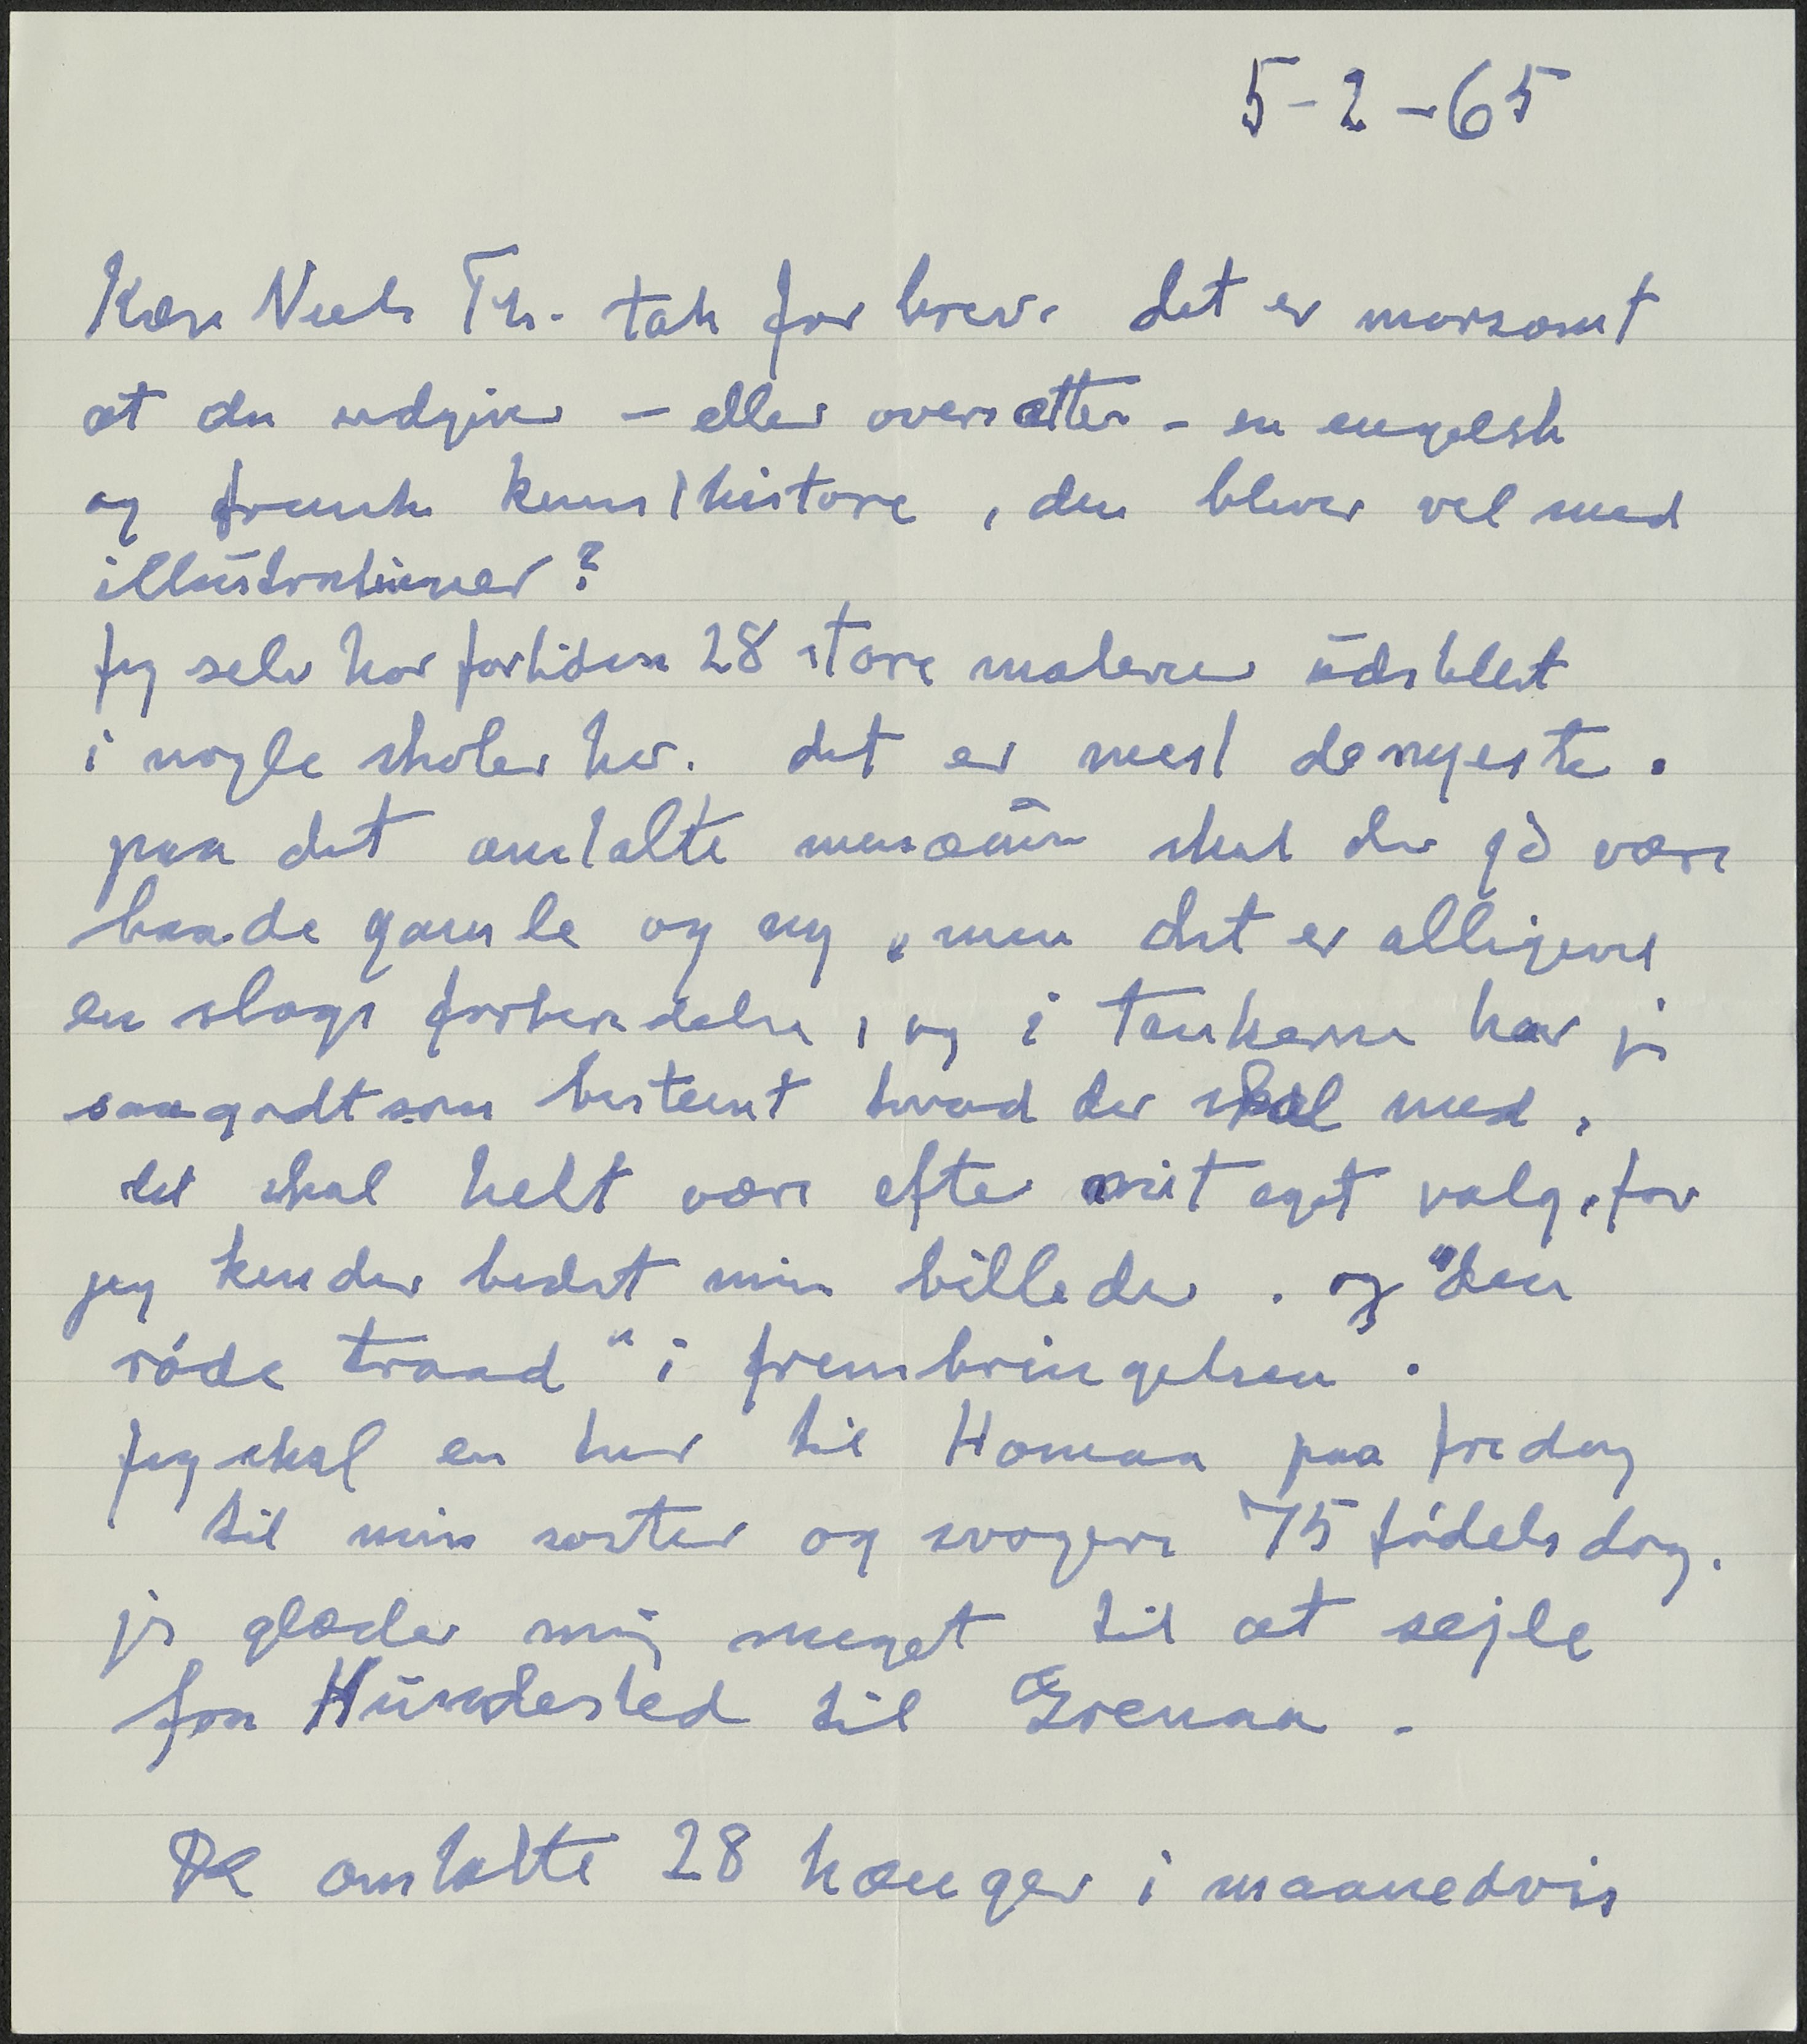 5-2-65
Kære Niels Th. tak for brev. det er morsomt
at du udgiver – eller oversætter – en engelsk
og fransk kunsthistore, den bliver vel med
illustrationer?
Jeg selv har fortiden 28 store malerier udstillet
i nogle skoler her. det er mest de nyeste.
paa det omtalte museum skal der jo være
baade gamle og ny, men det er alligevel
en slags forberedelse, og i tankerne har jeg
saagodtsom bestemt hvad der skal med,
det skal helt være efter mit eget valg, for
jeg kender bedst mine billeder. og "den
røde traad" i frembringelsen.
Jeg skal en tur til Homaa paa fredag
til min søster og svogers 75 fødelsdag.
jeg glæder mig meget til at sejle
fra Hundested til Grenaa.
De omtalte 28 hænger i maanedvis